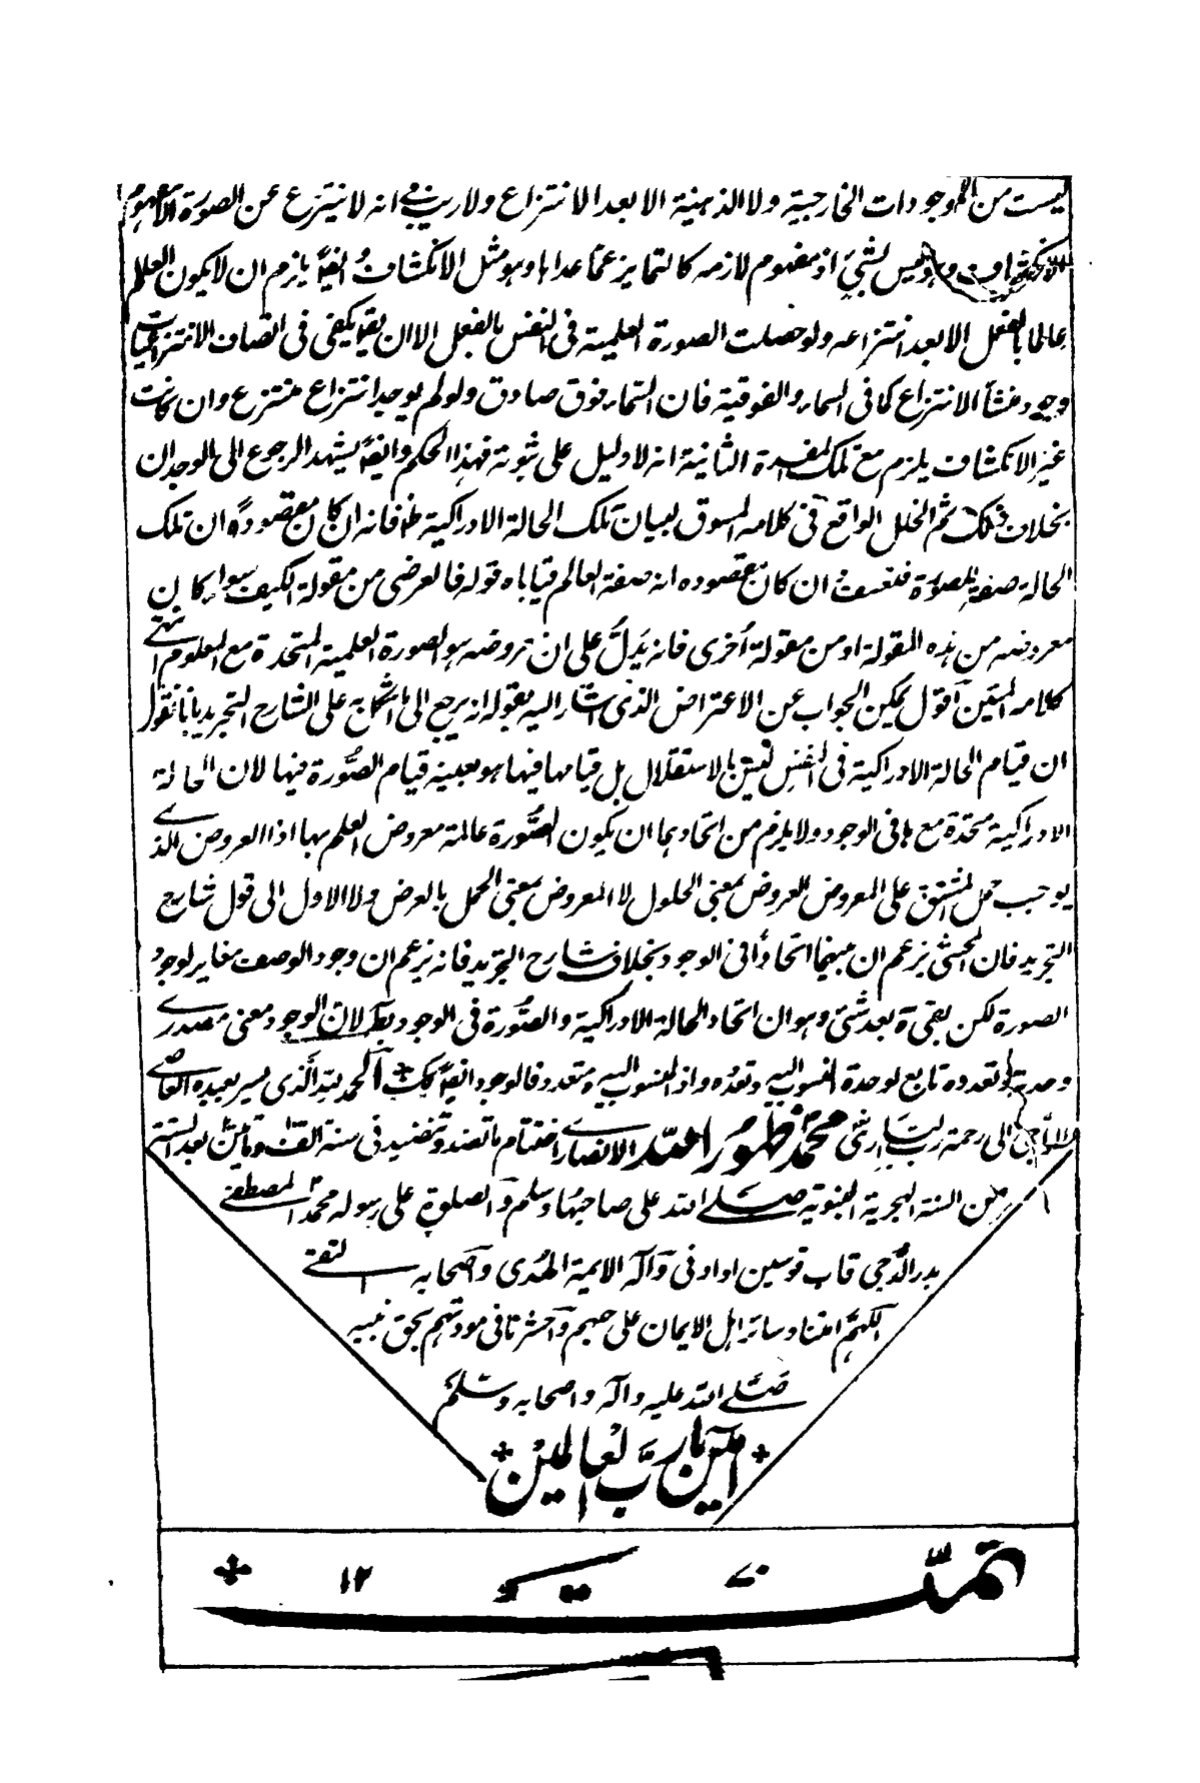 ليست من الموجودات الخارجية ولا الذهنية الا بعد الانتزاع ولا ريب في انه لا ينتزع عن الصورة الا مفهوم
الانكشاف وليس بشيء اذ مفهوم لازمه كالتمايز عما عداها وهو مثل الانكشاف ايضا يلزم ان لا يكون العلم
عالما بالفعل الا بعد انتزاعه ولو حصلت الصورة العلمية في النفس بالفعل الا ان يقال يكفي في اتصاف الانتزاعيات
وجود منشأ الانتزاع كما في السماء والفوقية فان السماء فوق صادق ولو لم يوجد انتزاع منتزع وان كانت
غير الانكشاف يلزم مع تلك المفسدة الثانية انه لا دليل على ثبوته فهذا الحكم وايضا يشهد الرجوع الى الوجدان
بخلاف ذلك ثم الخلل الواقع في كلامه المسوق لبيان تلك الحالة الادراكية ظ فانه ان كان مقصوده ان تلك
الحالة صفة للصورة فتعسف ان كان مقصوده انه صفة العالم فيأباه قوله فالعرضي من مقولة الكيف سواء كان
معروضه من هذه المقولة او من مقولة أخرى فانه يدل على ان معروضه هو الصورة العلمية المتحدة مع المعلوم انتهى
كلامه المتين أقول يمكن الجواب عن الاعتراض الذي اشار اليه بقوله انه يرجع الى ما شنّع به على الشارح التجريد بانا نقول
ان قيام الحالة الادراكية في النفس ليس بالاستقلال بل قيامها فيها هو بعينه قيام الصورة فيها لان الحالة
الادراكية متحدة معها في الوجود ولا يلزم من اتحادهما ان يكون الصورة عالمة معروض العلم بها اذ العروض الذي
يوجب حمل المشتق على المعروض العروض بمعنى الحلول لا المعروض بمعنى الحمل بالعرض ولا الاول الى قول شارح
التجريد فان المحشي يزعم ان بينهما اتحادا في الوجود بخلاف شارح التجريد فانه يزعم ان وجود الوصف مغاير لوجود
الصورة لكن بقي بعد شيء وهو ان اتحاد الحالة الادراكية والصورة في الوجود بط لان الوجود معنى مصدري
وحدته وتعدده تابع لوحدة المنسوب اليه وتعدده واذ المنسوب اليه متعدد فالوجود ايضا كك الحمد لله الذي يسر بعبده العاصي
الراجي الى رحمة ربه الباري محمد ظهور الله الانصاري اختتام ما تصدى تنضيده في سنة الف ومأتين بعد الستة
من السنة الهجرية النبوية صلى الله على صاحبها وسلم والصلوة على رسوله محمد المصطفى
بدر الدجى قاب قوسين او ادنى وآله الائمة الهدى واصحابه التقى
اللهم امتنا وسائر اهل الايمان على حبهم واحشرنا في مودتهم بحق نبيه
صلى الله عليه وآله واصحابه وسلم
امين يا رب العالمين
تمت ١٢